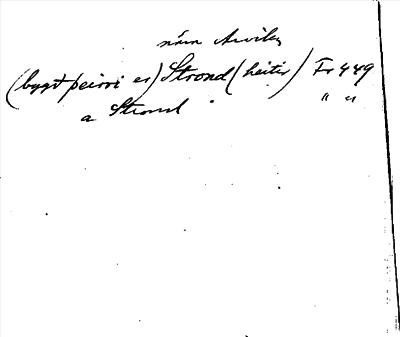 nära Arvika
(bygð þeirri er) Strond (heitir) Fr 449
a Strond " "